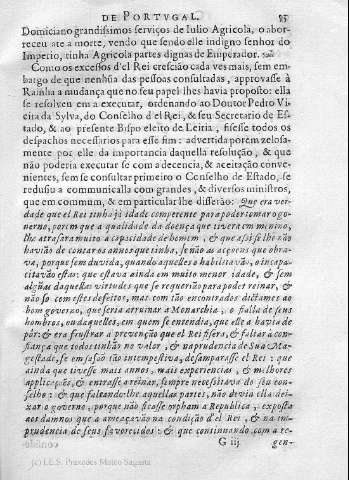 DE PORTVGAL. 95
Domiciano grandissimos serviços de Iulio Agricola, o abor-
receu ate a morte, vendo que sendo elle indigno senhor do
Imperio, tinha Agricola partes dignas de Emperador.
Como os excessos d'el Rei crescião cada ves mais, sem em-
bargo de que nenhũa das pessoas consultadas, approvasse à
Rainha a mudança que no seu papel lhes havia proposto: ella
se resolveu em a executar, ordenando ao Doutor Pedro Vi-
eira da Sylva, do Conselho d'el Rei, & seu Secretario de Es-
tado, & ao presente Bispo eleito de Leiria, fisesse todos os
despachos necessarios para esse fim: advertida porem zelosa-
mente por elle da importancia daquella resolução, & que
não poderia executar se com a decencia, & aceitação conve-
nientes, sem se consultar primeiro o Conselho de Estado, se
redusiu a communicalla com grandes, & diversos ministros,
que em commum, & em particular lhe disserão: Que era ver-
dade que el Rei tinha já idade competente para poder tomar o go-
verno, porem que a qualidade da doença que tivera em menino,
lhe atrasara muito a capacidade de homem, & que assi se lhe não
havião de contar os annos que tinha, se não as acçoens que obra-
va, porque sem duvida, quando aquelles o habilitavão, o incapa-
citavão estas: que estava ainda em muito menor idade, & sem
algũas daquellas virtudes que se requerião para poder reinar, &
não só com estes defeitos, mas com tão encontrados dictames ao
bom governo, que seria arruinar a Monarchia, o fialla de seus
hombros, ou daquelles, em quem se entendia, que elle a havia de
pór: & era frustrar a prevenção que el Rei fisera, & faltar á con-
fiança que todos tinhão no valor, & na prudencia de Sua Ma-
gestade, se em sasão tão intempestiva, desamparasse el Rei: que
ainda que tivesse mais annos, mais experiencias, & melhores
applicações, & entrasse a reinar, sempre necessitava do seu con-
selho: & que faltando-lhe aquellas partes, não devia ella dei-
xar o governo, porque não ficasse orpham a Republica, exposta
aos damnos que a ameaçavão na condição d'el Rei, & na im-
prudencia de seus favorecidos: & que continuando com a re-
G iij. gen-
(c) I.E.S. Práxedes Mateo Sagasta